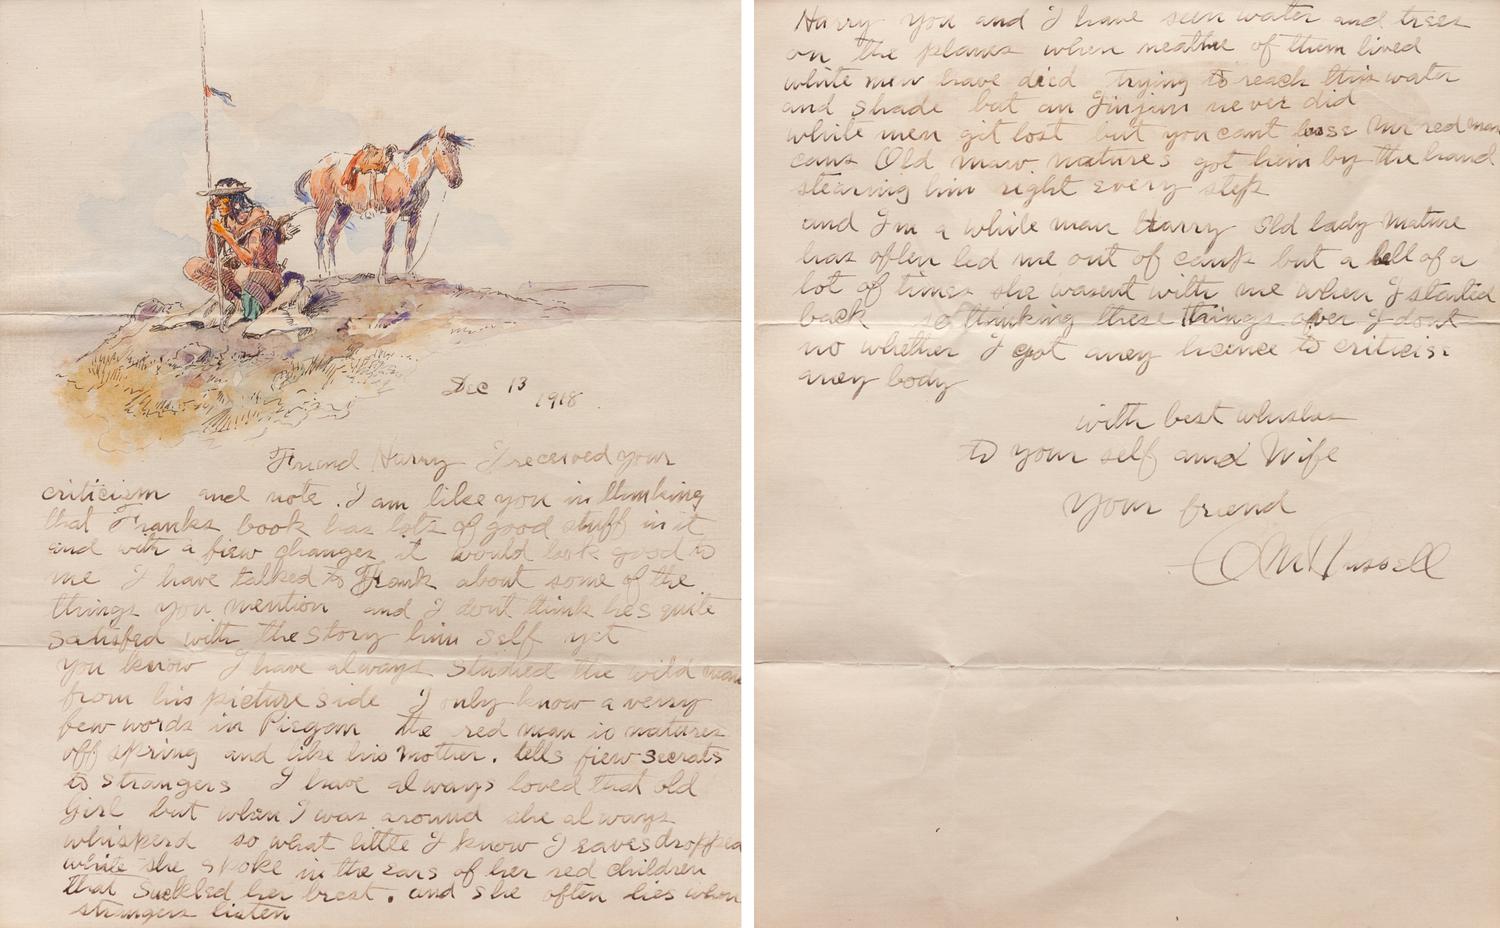 Dec 13
1918
Friend Harry I received your
criticism and note. I am like you in thinking
that Franks book has lots of good stuff in it
and with a fiew changes it would look good to
me I have talked to Frank about some of the
things you mention and I dont think hes quite
satisfed with the story him self yet
you know I have always studied the wild man
from his picture side I only know a verry
few words in Piegan the red man is natures
off spring and like his mother. tells fiew secrats
to strangers I have always loved that old
Girl but when I was around she always
whisperd so what little I know I eavesdropped
while she spoke in the ears of her red children
that suckled her brest. and she often lies when
strangers listen
Harry you and I have seen water and trees
on the planes when neathe of them lived
white men have died trying to reach this water
and shade but an Injun never did
white men git lost but you cant loose Mr red man
caus Old maw nature's got him by the hand
stearing him right every step
and Im a white man Harry Old lady Nature
has often led me out of camp but a hell of a
lot of times she wasent with me when I started
back so thinking these things over I dont
no whether I got aney licence to criticise
aney body
with best whishes
to your self and Wife
your friend
CM Russell